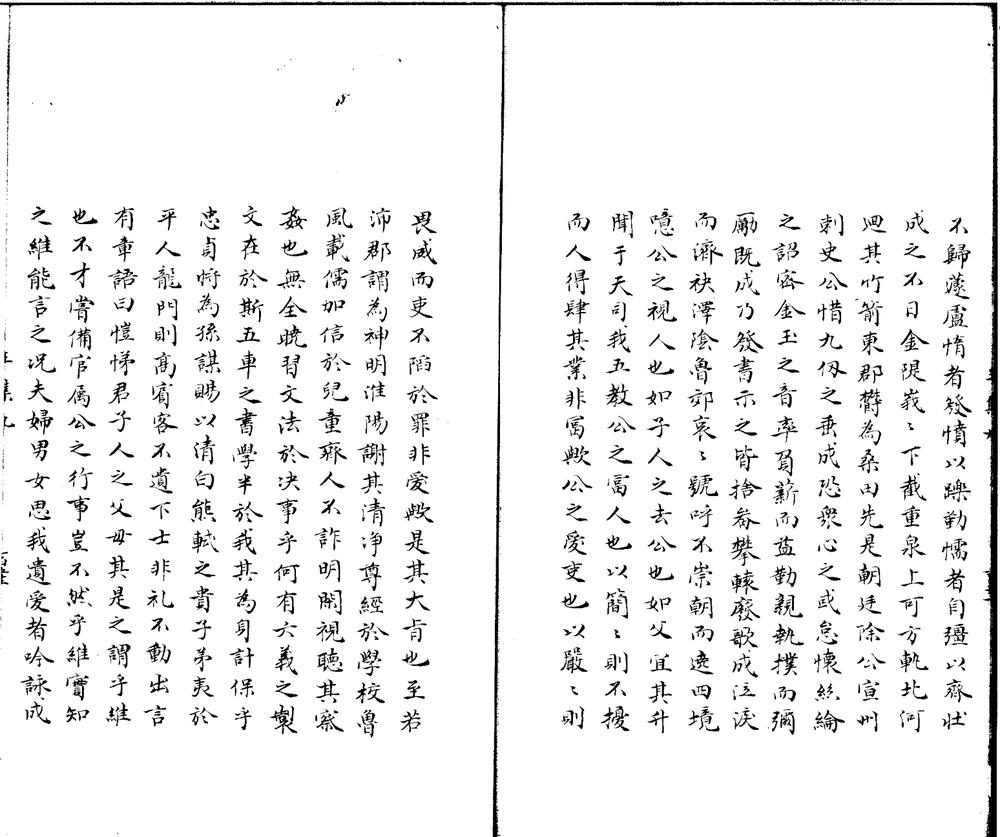 不歸蘧盧惰者發憤以躒勤懦者自彊以齊壯
成之不日金隄峩〻下截重泉上可方軌北河
迴其竹箭東郡欝為桑田先是朝廷除公宣州
刺史公惜九仭之垂成恐衆心之或怠懷絲綸
之詔密金玉之音率負薪而益勤親執撲而彌
厲既成乃發書示之皆捨畚攀轅廢歌成泣淚
而濟袂澤陰魯郊哀〻號呼不崇朝而遶四境
噫公之視人也如子人之去公也如父宜其升
聞于天司我五教公之富人也以簡〻則不擾
而人得肆其業非富歟公之愛吏也以嚴〻則
畏威而吏不陷於罪非愛歟是其大旨也至若
沛郡謂為神明淮陽謝其清浄尊經於學校魯
風載儒加信於兒童齊人不詐明開視聽其察
姦也無全曉習文法於決事乎何有六義之製
文在於斯五車之書學半於我其為身計保乎
忠貞將為孫謀賜以清白熊軾之貴子弟夷於
平人龍門則高賓客不遺下士非礼不動出言
有章語曰愷悌君子人之父母其是之謂乎維
也不才嘗備官屬公之行事豈不然乎維實知
之維能言之况夫婦男女思我遺愛者吟詠成